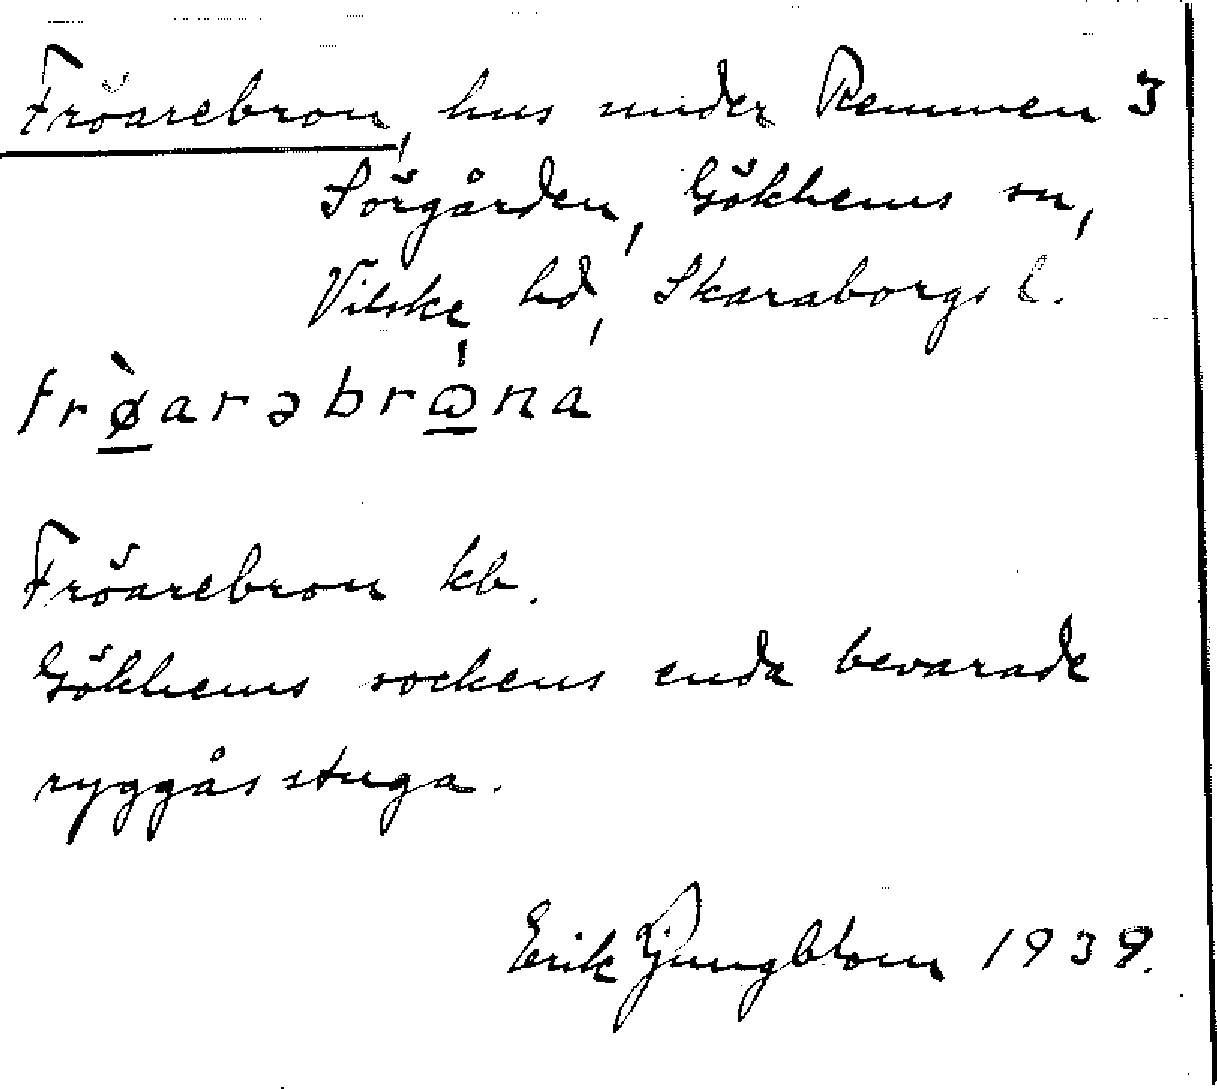 Fröarebron, hus under Remmen 3
Sörgården, Gökhems sn,
Vilske hd, Skaraborgs l.
frø̀arəbrɷna
Fröarebron kb.
Gökhems sockens enda bevarade
ryggåsstuga.
Erik Ljungblom 1939.